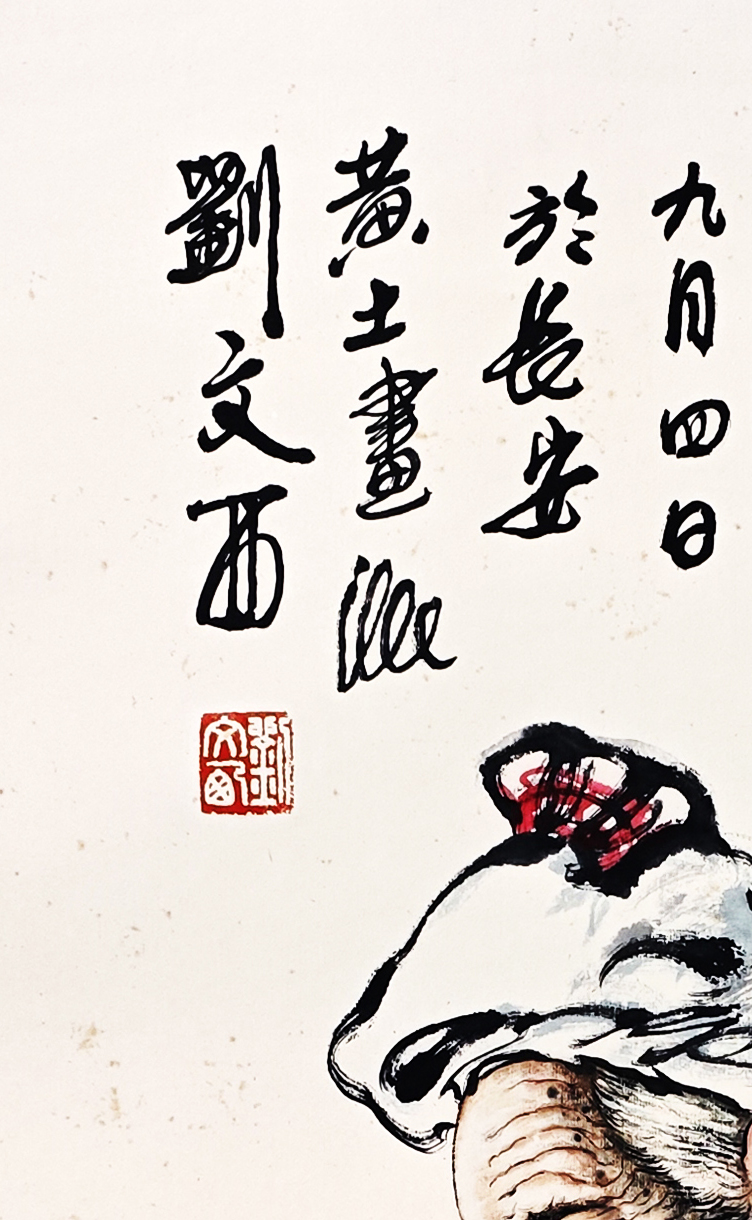 九月四日
於長安
黃土畫派
劉文西
劉文西